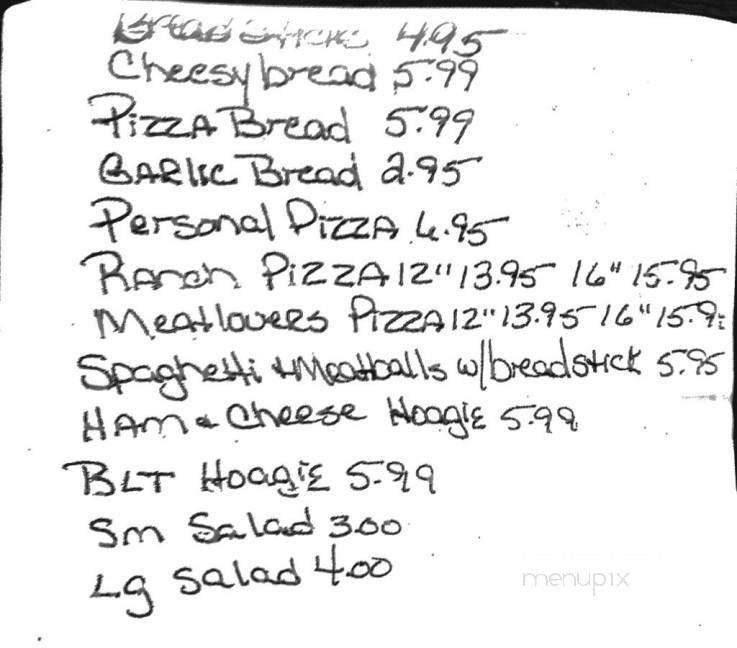 Bread Sticks 4.95
Cheesy bread 5.99
PizzA Bread 5.99
GARlic Bread 2.95
Personal PizzA 4.95
RAnch PiZZA 12" 13.95 16" 15.95
Meatlovers PizzA 12" 13.95 16" 15.9
Spaghetti & Meatballs w/breadstick 5.95
HAm & Cheese Hoagie 5.99
BLT Hoagie 5.99
Sm Salad 3.00
Lg Salad 4.00
menupix